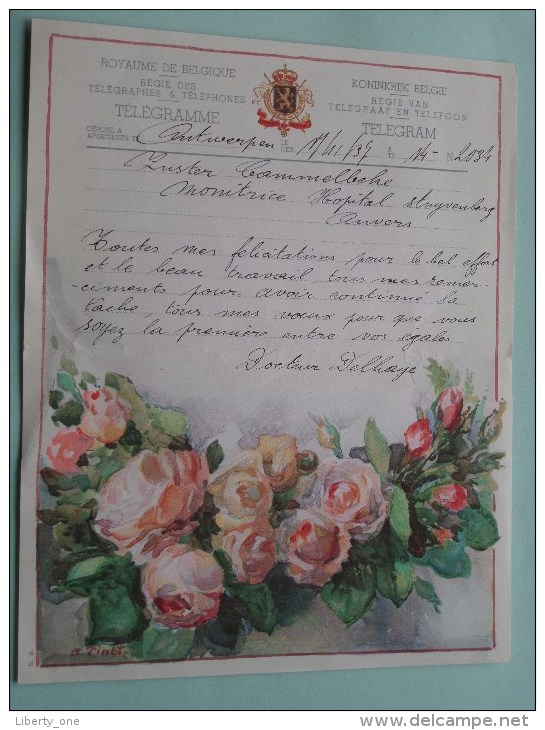 ROYAUME DE BELGIQUE
RÉGIE DES
TÉLÉGRAPHES & TÉLÉPHONES
TÉLÉGRAMME
KONINKRIJK BELGIE
RÉGIE VAN
TELEGRAAF EN TELEFOON
TELEGRAM
DÉPOSÉ A
AFGEGEVEN TE Antwerpen LE DEN 17/11/37 A TE 14- N 2034
Zuster Cammelbeke
Monitrice Hopital Stuyvenberg
Anvers
Toutes mes felicitations pour le bel effort
et le beau travail, tous mes remer-
ciments pour avoir continué la
tache, tous mes vœux pour que vous
soyez la première entre vos égales
Docteur Delhaye
Liberty_one
http://www.delcampe.net